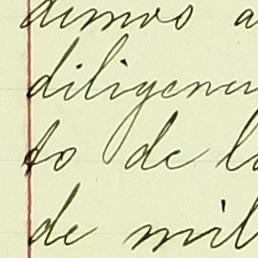 dimos a
diligenci
to de la
de mil